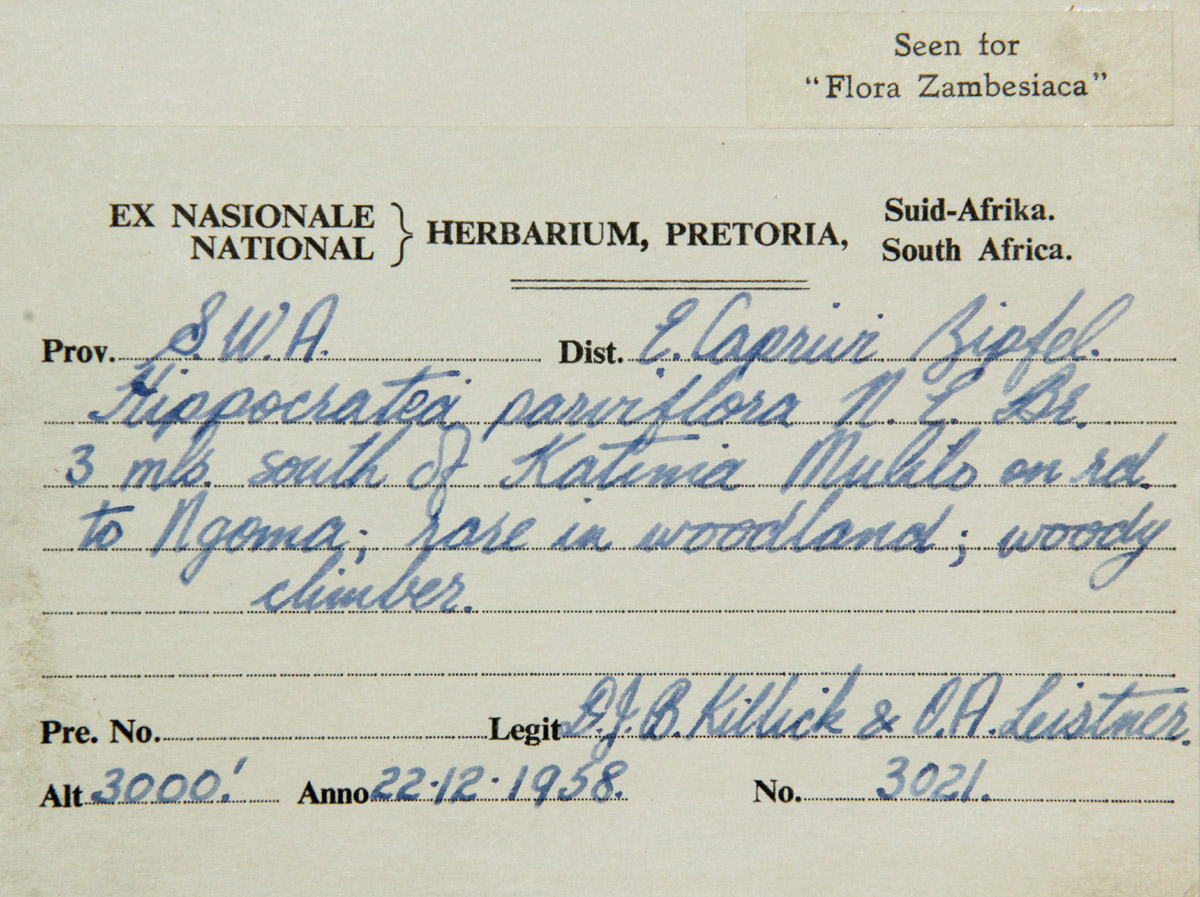 Seen for
"Flora Zambesiaca"
EX NASIONALE
NATIONAL } HERBARIUM, PRETORIA, Suid-Afrika.
South Africa.
Prov. S.W.A. Dist. E. Caprivi Zipfel.
Hippocratea parviflora N. E. Br.
3 mls. south of Katima Mulilo on rd.
to Ngoma; rare in woodland; woody
climber.
Pre. No. Legit D.J.B. Killick & O.A. Leistner.
Alt 3000.' Anno 22.12.1958. No. 3021.